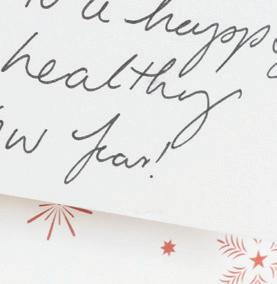 to a happy
healthy
ew Year!